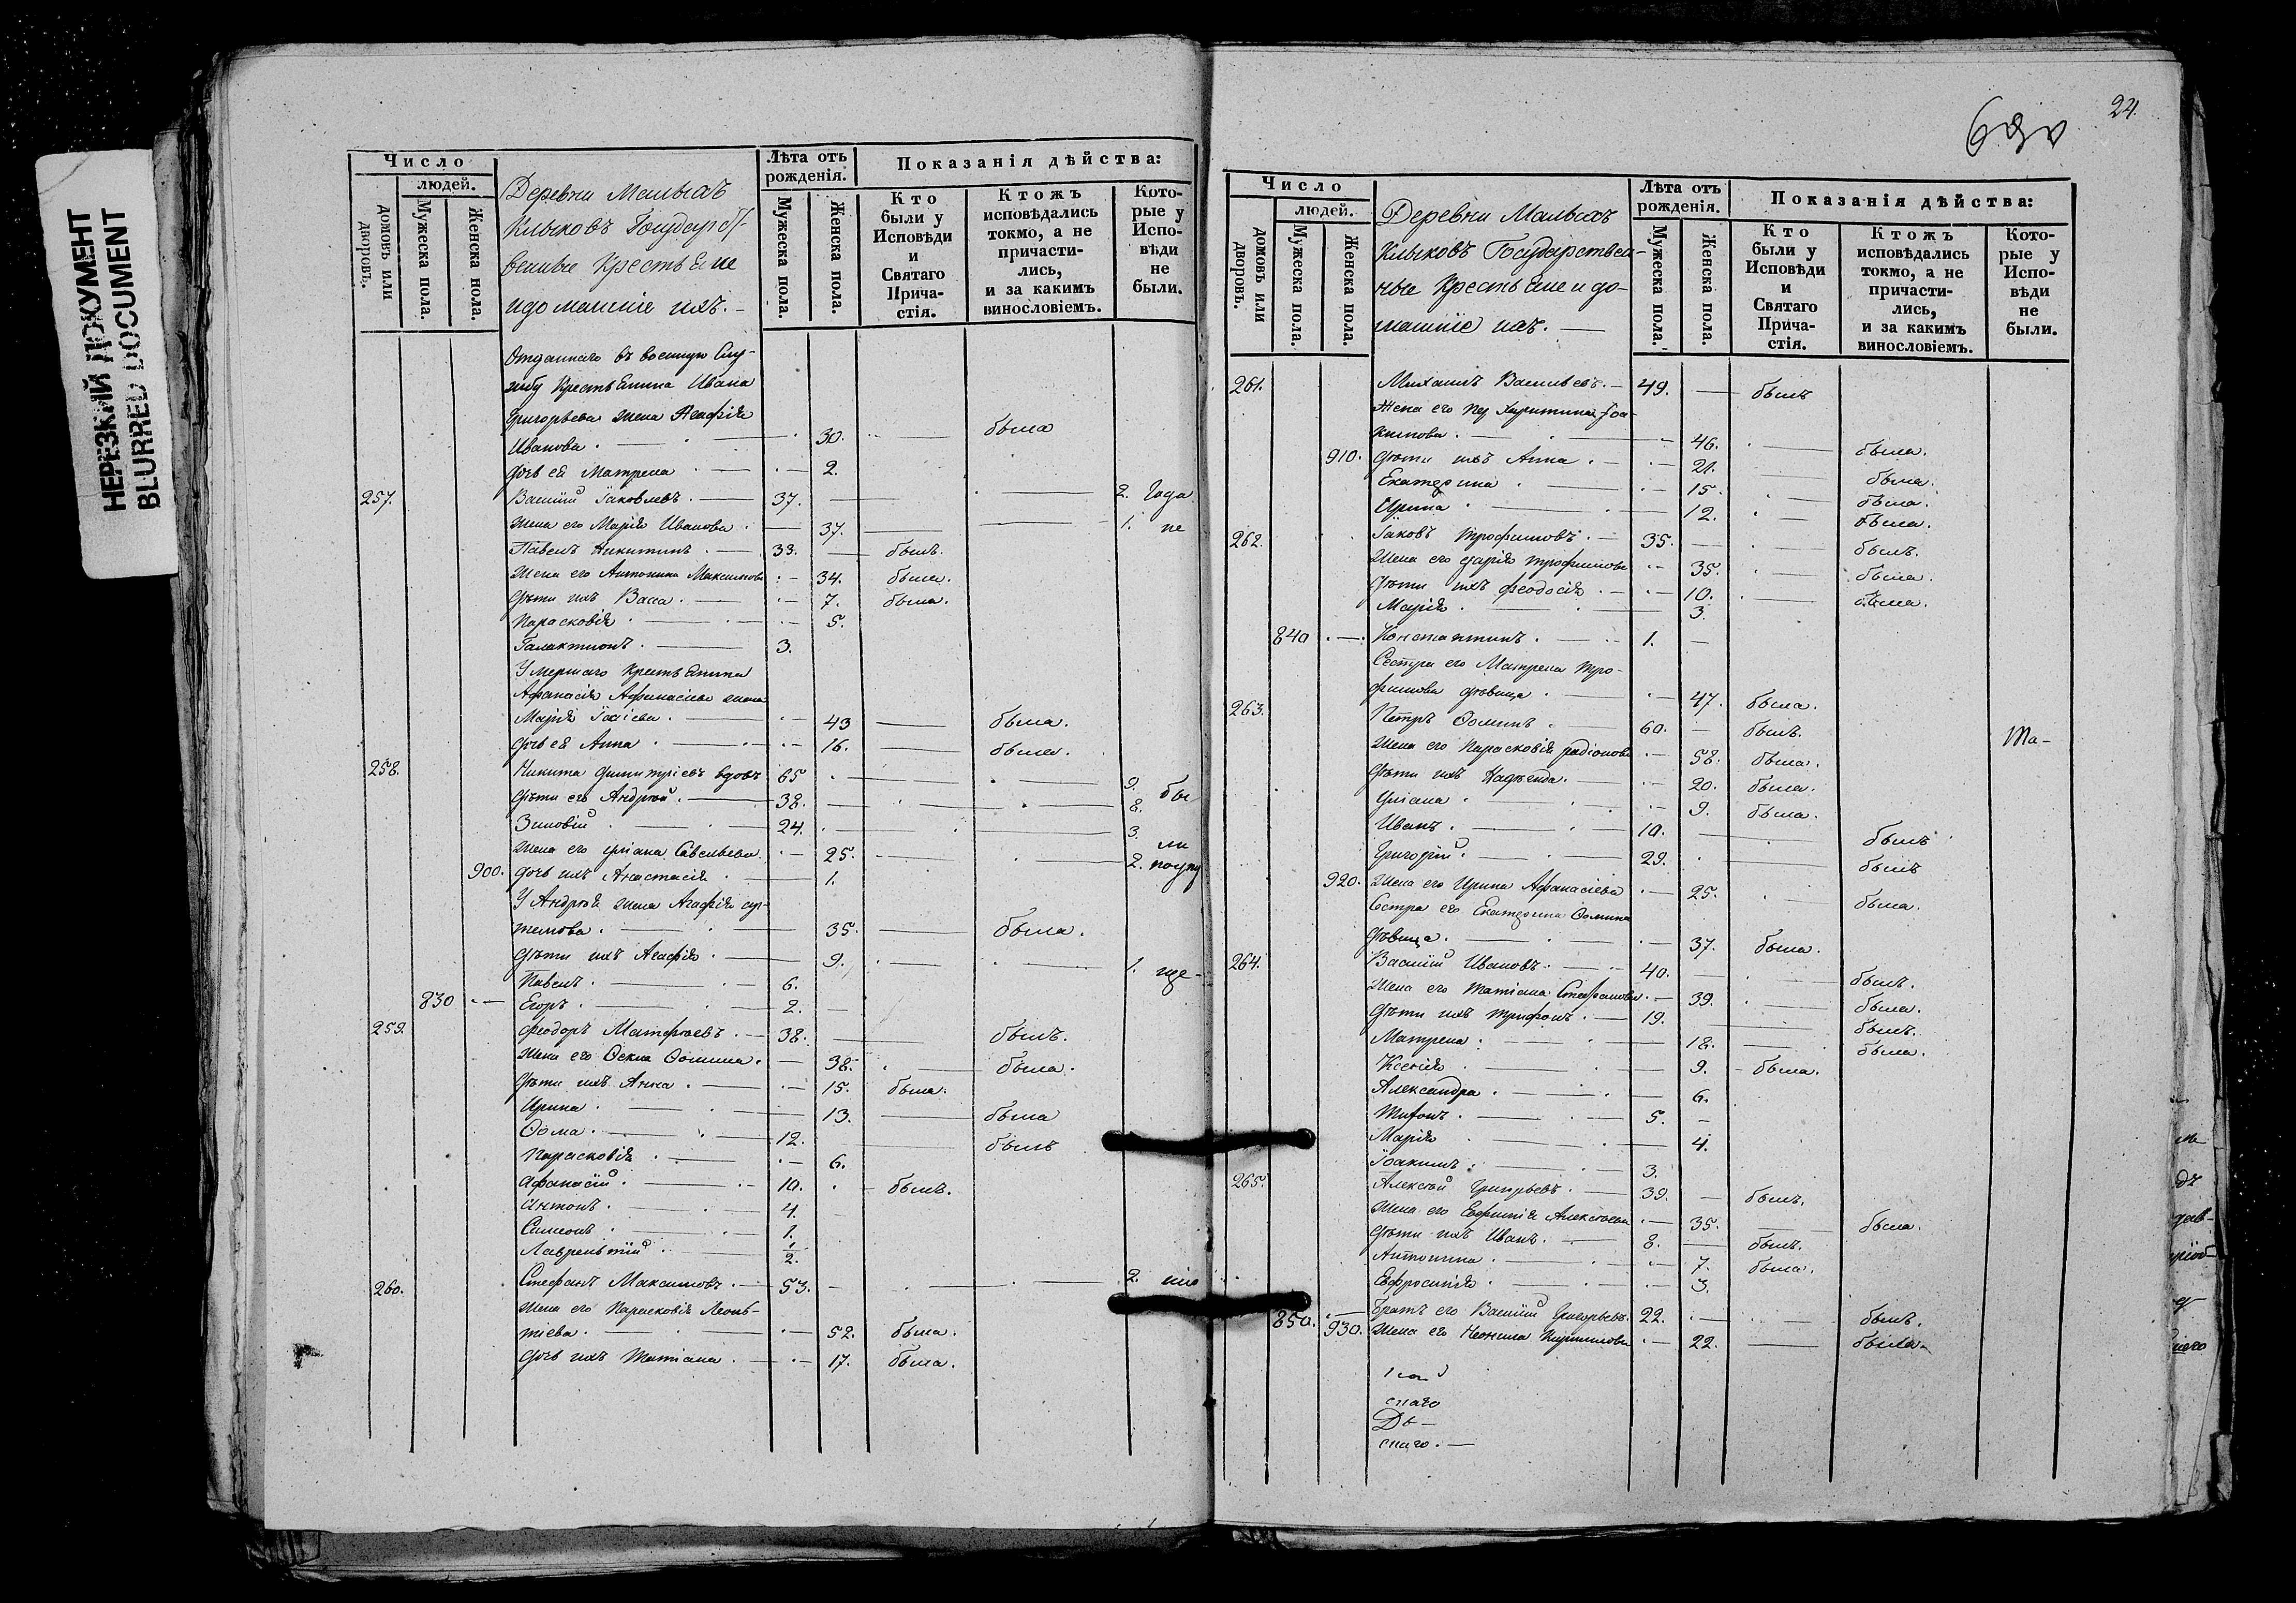 НЕРЕЗКИЙ ДОКУМЕНТ
BLURRED DOCUMENT
Число
людей.
домовъ или дворовъ.
Мужеска пола.
Женска пола.
Деревни Малыхъ
Клыковъ Государст-
венные Крестьяне
и домашніе ихъ. —
Лѣта отъ рожденія.
Мужеска пола.
Женска пола.
Показанія дѣйства:
Кто были у Исповѣди и Святаго Прича-стія.
Ктожъ исповѣдались токмо, а не причасти-лись, и за какимъ винословіемъ.
Кото-рые у Испо-вѣди не были.
Отданнаго въ военную Слу-
жбу Крестьянина Ивана
Григорьева жена Агафія
Иванова . — 30. — была
Дочь ея Матрена . — 2.
257. Василій Іаковлевъ . — 37. — 2. года
Жена его Марія Иванова . — 37. — 1. не
Павелъ Никитинъ . — 33. — былъ.
Жена его Антонина Максимова . — 34. была.
Дѣти ихъ Васса . — 7. была.
Парасковія . — 5.
Галактионъ . — 3.
Умершаго Крестьянина
Афанасія Афанасіева жена
Марія . — 43 — была.
Дочь ея Анна . — 16. — была.
258. Никита Димитріевъ вдовъ 65 . — 9.
Дѣти его Андрей . — 38. — 8. бы
Зиновій . — 24. — 3.
ли
Жена его Уліана Савельева . — 25. — 2.
900. Дочь ихъ Анастасія . — 1.
У Андрея жена Агафія Ар-
темова . — 35. — была.
Дѣти ихъ Агафія . — 9. — 1.
Павелъ . — 6.
830 . — Егоръ . — 2. —
259. Феодоръ Матфѣевъ . — 38. — былъ.
Жена его Ѳекла Ѳомина . — 38. — была.
Дѣти ихъ Анна . — 15. была.
Ирина . — 13. — была
Ѳома . — 12. — былъ
Парасковія . — 6.
Афанасій . — 10. — былъ.
Антонъ . — 4.
Симеонъ . — 1.
Лаврентій . — 1/2.
260. Стефанъ Максимовъ . — 53. — 2.
Жена его Парасковія Леонь-
тіева . — 52. была.
Дочь ихъ Татіана . — 17. была.
24.
Число
людей.
домовъ или дворовъ.
Мужеска пола.
Женска пола.
Деревни Малыхъ
Клыковъ Государствен-
ные Крестьяне и до-
машніе ихъ. —
Лѣта отъ рожденія.
Мужеска пола.
Женска пола.
Показанія дѣйства:
Кто были у Исповѣди и Святаго Прича-стія.
Ктожъ исповѣдались токмо, а не причасти-лись, и за какимъ винословіемъ.
Кото-рые у Испо-вѣди не были.
261. Михаилъ Васильевъ . — 49. — былъ
Жена его Харитина Іоа-
кимова . — 46. — была.
910. Дѣти ихъ Анна . — 21. — была.
Екатерина . — 15. — была.
Ирина . — 12. — была.
262. Іаковъ Трофимовъ . — 35. — былъ.
Жена его Дарія Трофимова — 35. — была.
Дѣти ихъ Феодосія . — 10. — была.
Марія . — 3.
840 . — Константинъ . — 1. —
Сестра его Матрена Тро-
фимова дѣвица . — 47. была.
263. Петръ Ѳоминъ . — 60. — былъ.
Та-
Жена его Парасковія Радіонова — 58. была.
Дѣти ихъ Надежда . — 20. была.
Уліана . — 9. была.
Иванъ . — 10. — былъ
Григорій . — 29. — былъ
920. Жена его Ирина Афанасіева — 25. — была.
Сестра его Екатерина Ѳомина
дѣвица . — 37. была.
264. Василій Ивановъ . — 40. — былъ.
Жена его Татіана Стефанова . — 39. — была.
Дѣти ихъ Трифонъ . — 19. — былъ.
Матрена . — 18. — была.
Ксенія . — 9. — была.
Александра . — 6.
Тифонъ . — 5. —
Марія — 4.
Іоакимъ . — 3.
265. Алексѣй Григорьевъ . — 39. — былъ.
Жена его Евфимія Алексѣева . — 35. — была.
Дѣти ихъ Иванъ . — 8. — былъ.
Антонина . — 7. была.
Евфросинія . — 3.
850. Братъ его Василій Григорьевъ. 22. — былъ.
930. Жена его Неонила Кириллова . — 22. — была.